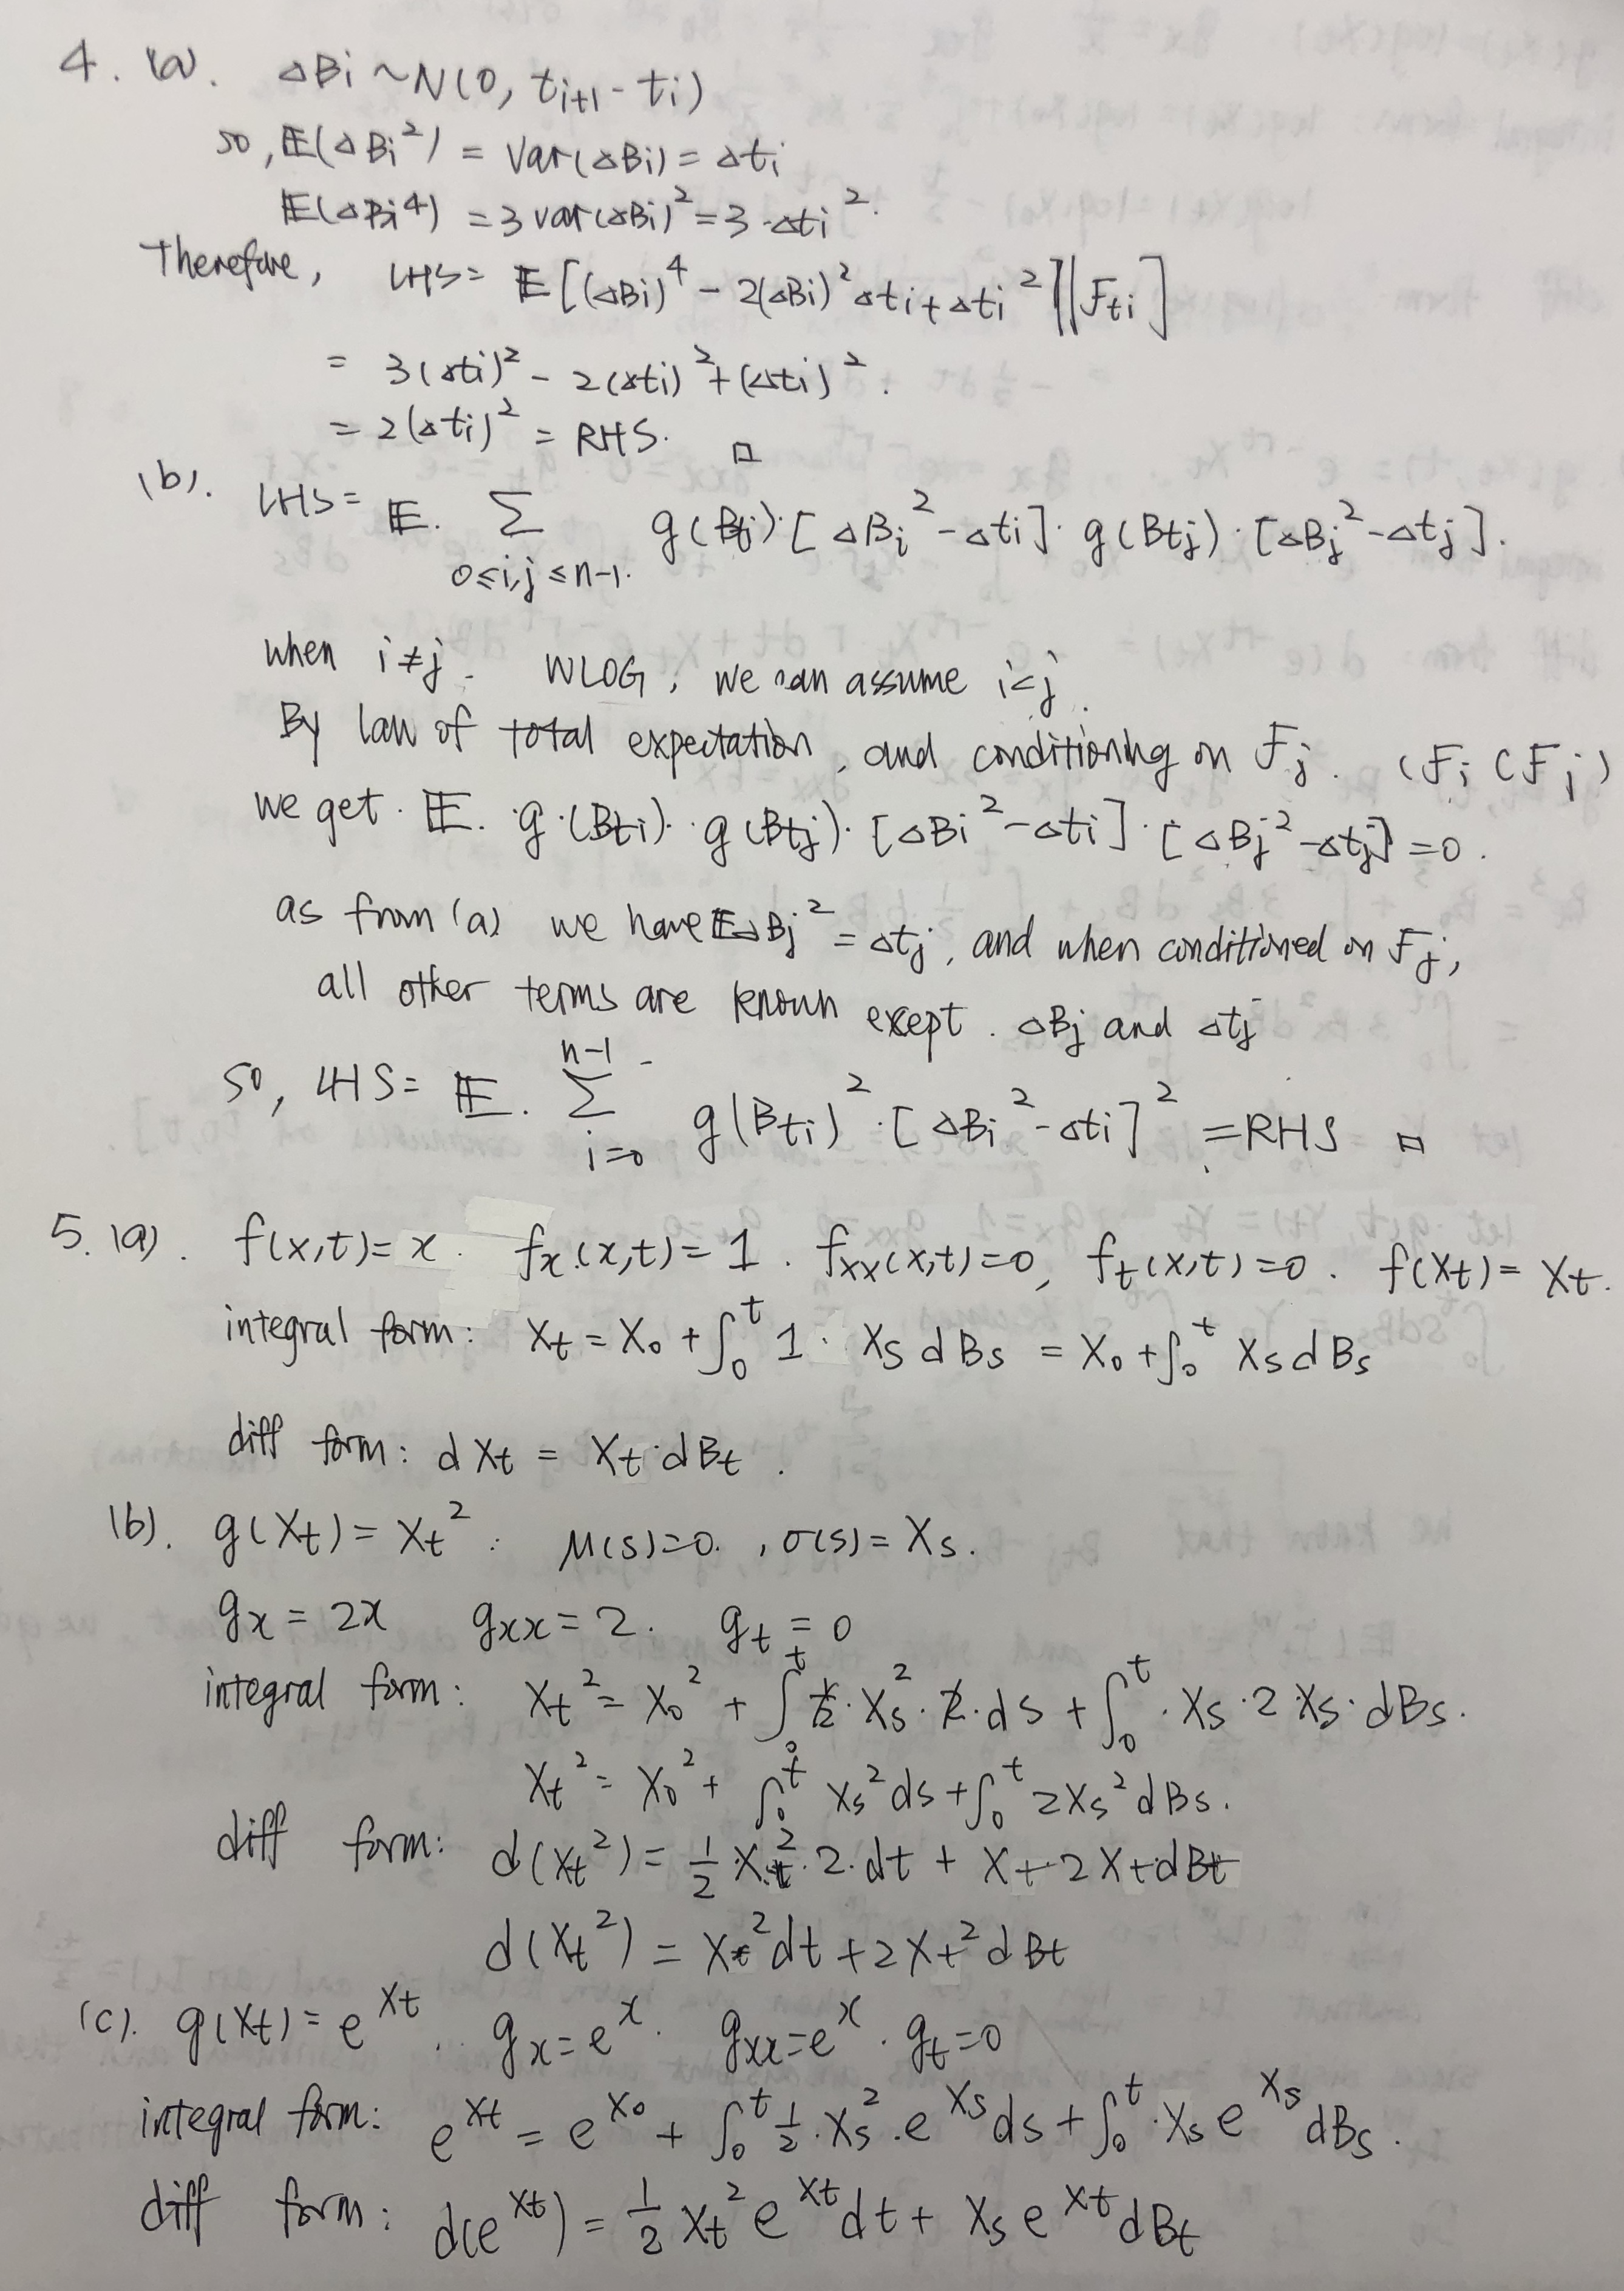 4. (a). ΔBi ~ N(0, t_{i+1} - t_i)
so, 𝔼(ΔBi²) = Var(ΔBi) = Δti
𝔼(ΔBi⁴) = 3 var(ΔBi)² = 3·Δti².
Therefore, LHS = 𝔼[(ΔBi)⁴ - 2(ΔBi)²Δti + Δti²]|F_{ti}]
= 3(Δti)² - 2(Δti)² + (Δti)².
= 2(Δti)² = RHS. □
(b). LHS = 𝔼. Σ_{0≤i,j≤n-1.} g(B_{ti})·[ΔBi² - Δti]· g(B_{tj})·[ΔBj² - Δtj].
when i≠j. WLOG, we can assume i<j.
By law of total expectation, and conditioning on Fj. (Fi ⊂ Fj)
we get. 𝔼. g·(B_{ti})· g(B_{tj})·[ΔBi² - Δti]·[ΔBj² - Δtj] = 0.
as from (a) we have 𝔼ΔBj² = Δtj, and when conditioned on Fj,
all other terms are known except. ΔBj and Δtj
so, LHS = 𝔼. Σ_{i=0}^{n-1} g(B_{ti})²·[ΔBi² - Δti]² = RHS □
5. (a). f(x,t) = x. fx(x,t) = 1. fxx(x,t) = 0, ft(x,t) = 0. f(Xt) = Xt.
integral form: Xt = X₀ + ∫₀ᵗ 1· Xs dBs = X₀ + ∫₀ᵗ Xs dBs
diff form: dXt = Xt·dBt.
(b). g(Xt) = Xt². μ(s) = 0. , σ(s) = Xs.
gx = 2x gxx = 2. gt = 0
integral form: Xt² = X₀² + ∫₀ᵗ ½·Xs²·2·ds + ∫₀ᵗ·Xs·2Xs·dBs.
Xt² = X₀² + ∫₀ᵗ Xs² ds + ∫₀ᵗ 2Xs² dBs.
diff form: d(Xt²) = ½ Xt²·2·dt + Xt·2Xt dBt
d(Xt²) = Xt² dt + 2Xt² dBt
(c). g(Xt) = e^{Xt}.. gx = eˣ. gxx = eˣ. gt = 0
integral form: e^{Xt} = e^{X₀} + ∫₀ᵗ ½·Xs²·e^{Xs} ds + ∫₀ᵗ·Xs e^{Xs} dBs.
diff form: d(e^{Xt}) = ½ Xt² e^{Xt} dt + Xs e^{Xt} dBt